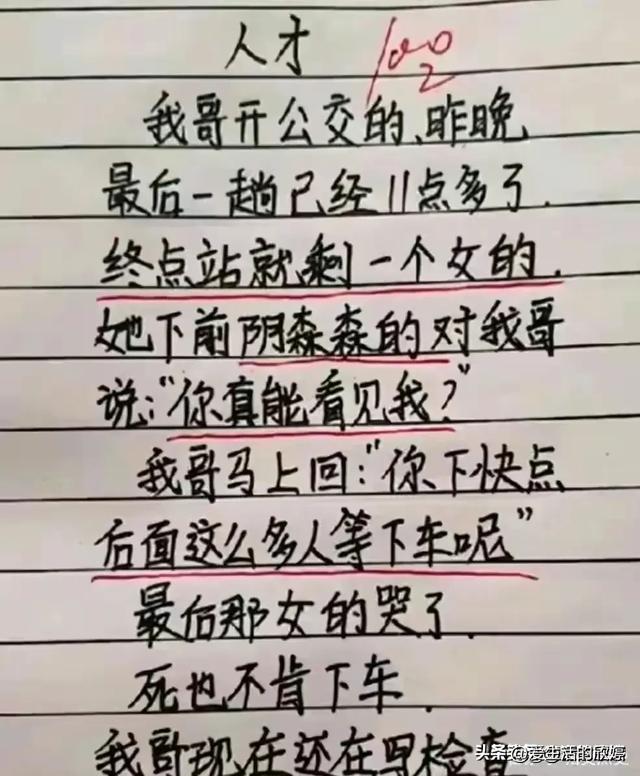 人才 100
我哥开公交的、昨晚
最后一趟已经11点多了.
终点站就剩一个女的.
她下前阴森森的对我哥
说:"你真能看见我?"
我哥马上回:"你下快点
后面这么多人等下车呢"
最后那女的哭了.
死也不肯下车.
我哥现在还在写检查
头条 @爱生活的欣嬑